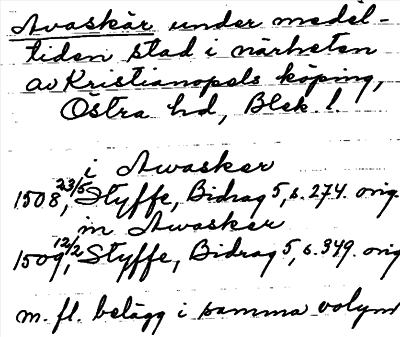 Avaskär under medel-
tiden stad i närheten
av Kristianopels köping,
Östra hd, Blek. l.
i Awasker
1508, 23/5, Styffe, Bidrag 5, s. 274. orig.
in Awasker
1509, 12/2, Styffe, Bidrag 5, s. 349. orig
m. fl. belägg i samma volym